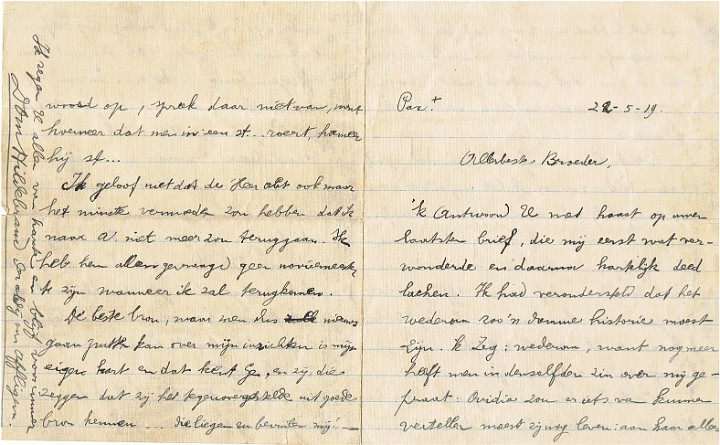 Pax +
22-5-19.
Allerbeste Broeder,
'k Antwoord U met haast op uwen
laatsten brief, die mij eerst wat ver-
wonderde en daarna hartelijk deed
lachen. Ik had verondersteld dat het
wederom zoo'n domme historie moest
zijn. 'k Zeg: wederom, want nog meer
heeft men in denzelfden zin over mij ge-
praat: Ovidia zou er iets van kunnen
vertellen moest zij nog leven: aan haar alleen
woord op, spreek daar niet van, want
hoemeer dat men in een st.. roert, hoemeer
hij st...
Ik geloof niet dat de Heer abt ook maar
het minste vermoeden zou hebben dat ik
naar A. niet meer zou teruggaan. Ik
heb hem alleen gevraagd geen noviesmeester
te zijn wanneer ik zal terugkomen.
De beste bron, waar men dus nieuws
gaan putten kan over mijn inzichten is mijn
eigen hart en dat kent Ge, en zij, die
zeggen dat zij het tegenovergestelde uit goede
bron kennen... die liegen en
Ik zegen U allen van harte en blijf voor immer
Dom Hildebrand